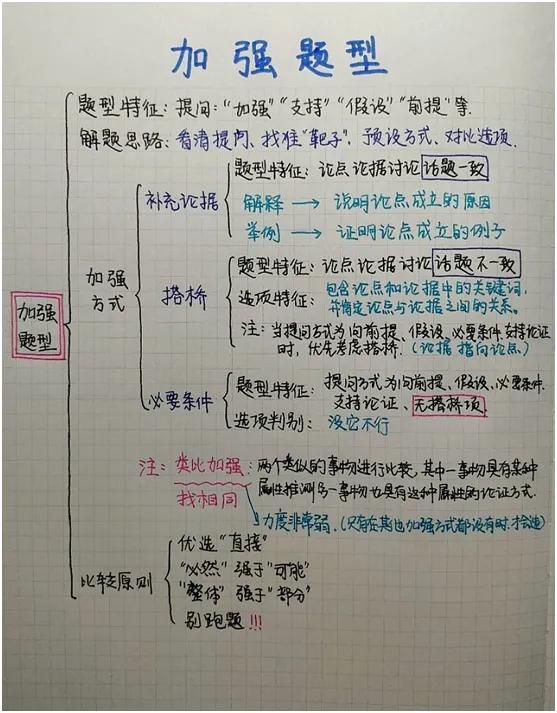 加强题型
题型特征：提问："加强""支持""假设""前提"等.
解题思路：看清提问、找准"靶子"、预设方式、对比选项.
题型特征：论点论据讨论话题一致
补充论据
解释 → 说明论点成立的原因
举例 → 证明论点成立的例子
加强
方式
题型特征：论点论据讨论话题不一致
搭桥
选项特征：包含论点和论据中的关键词,
并肯定论点与论据之间的关系。
注：当提问方式为问前提、假设、必要条件、支持论证
时，优先考虑搭桥.（论据指向论点）
加强
题型
题型特征：提问方式为问前提、假设、必要条件.
支持论证、无搭桥项.
必要条件
选项判别：没它不行
注：类比加强：两个类似的事物进行比较，其中一事物具有某种
属性推测另一事物也具有这种属性的论证方式.
找相同
力度非常弱.（只有在其他加强方式都没有时.才会选）
优选"直接"
"必然"强于"可能"
比较原则
"整体"强于"部分"
别跑题!!!